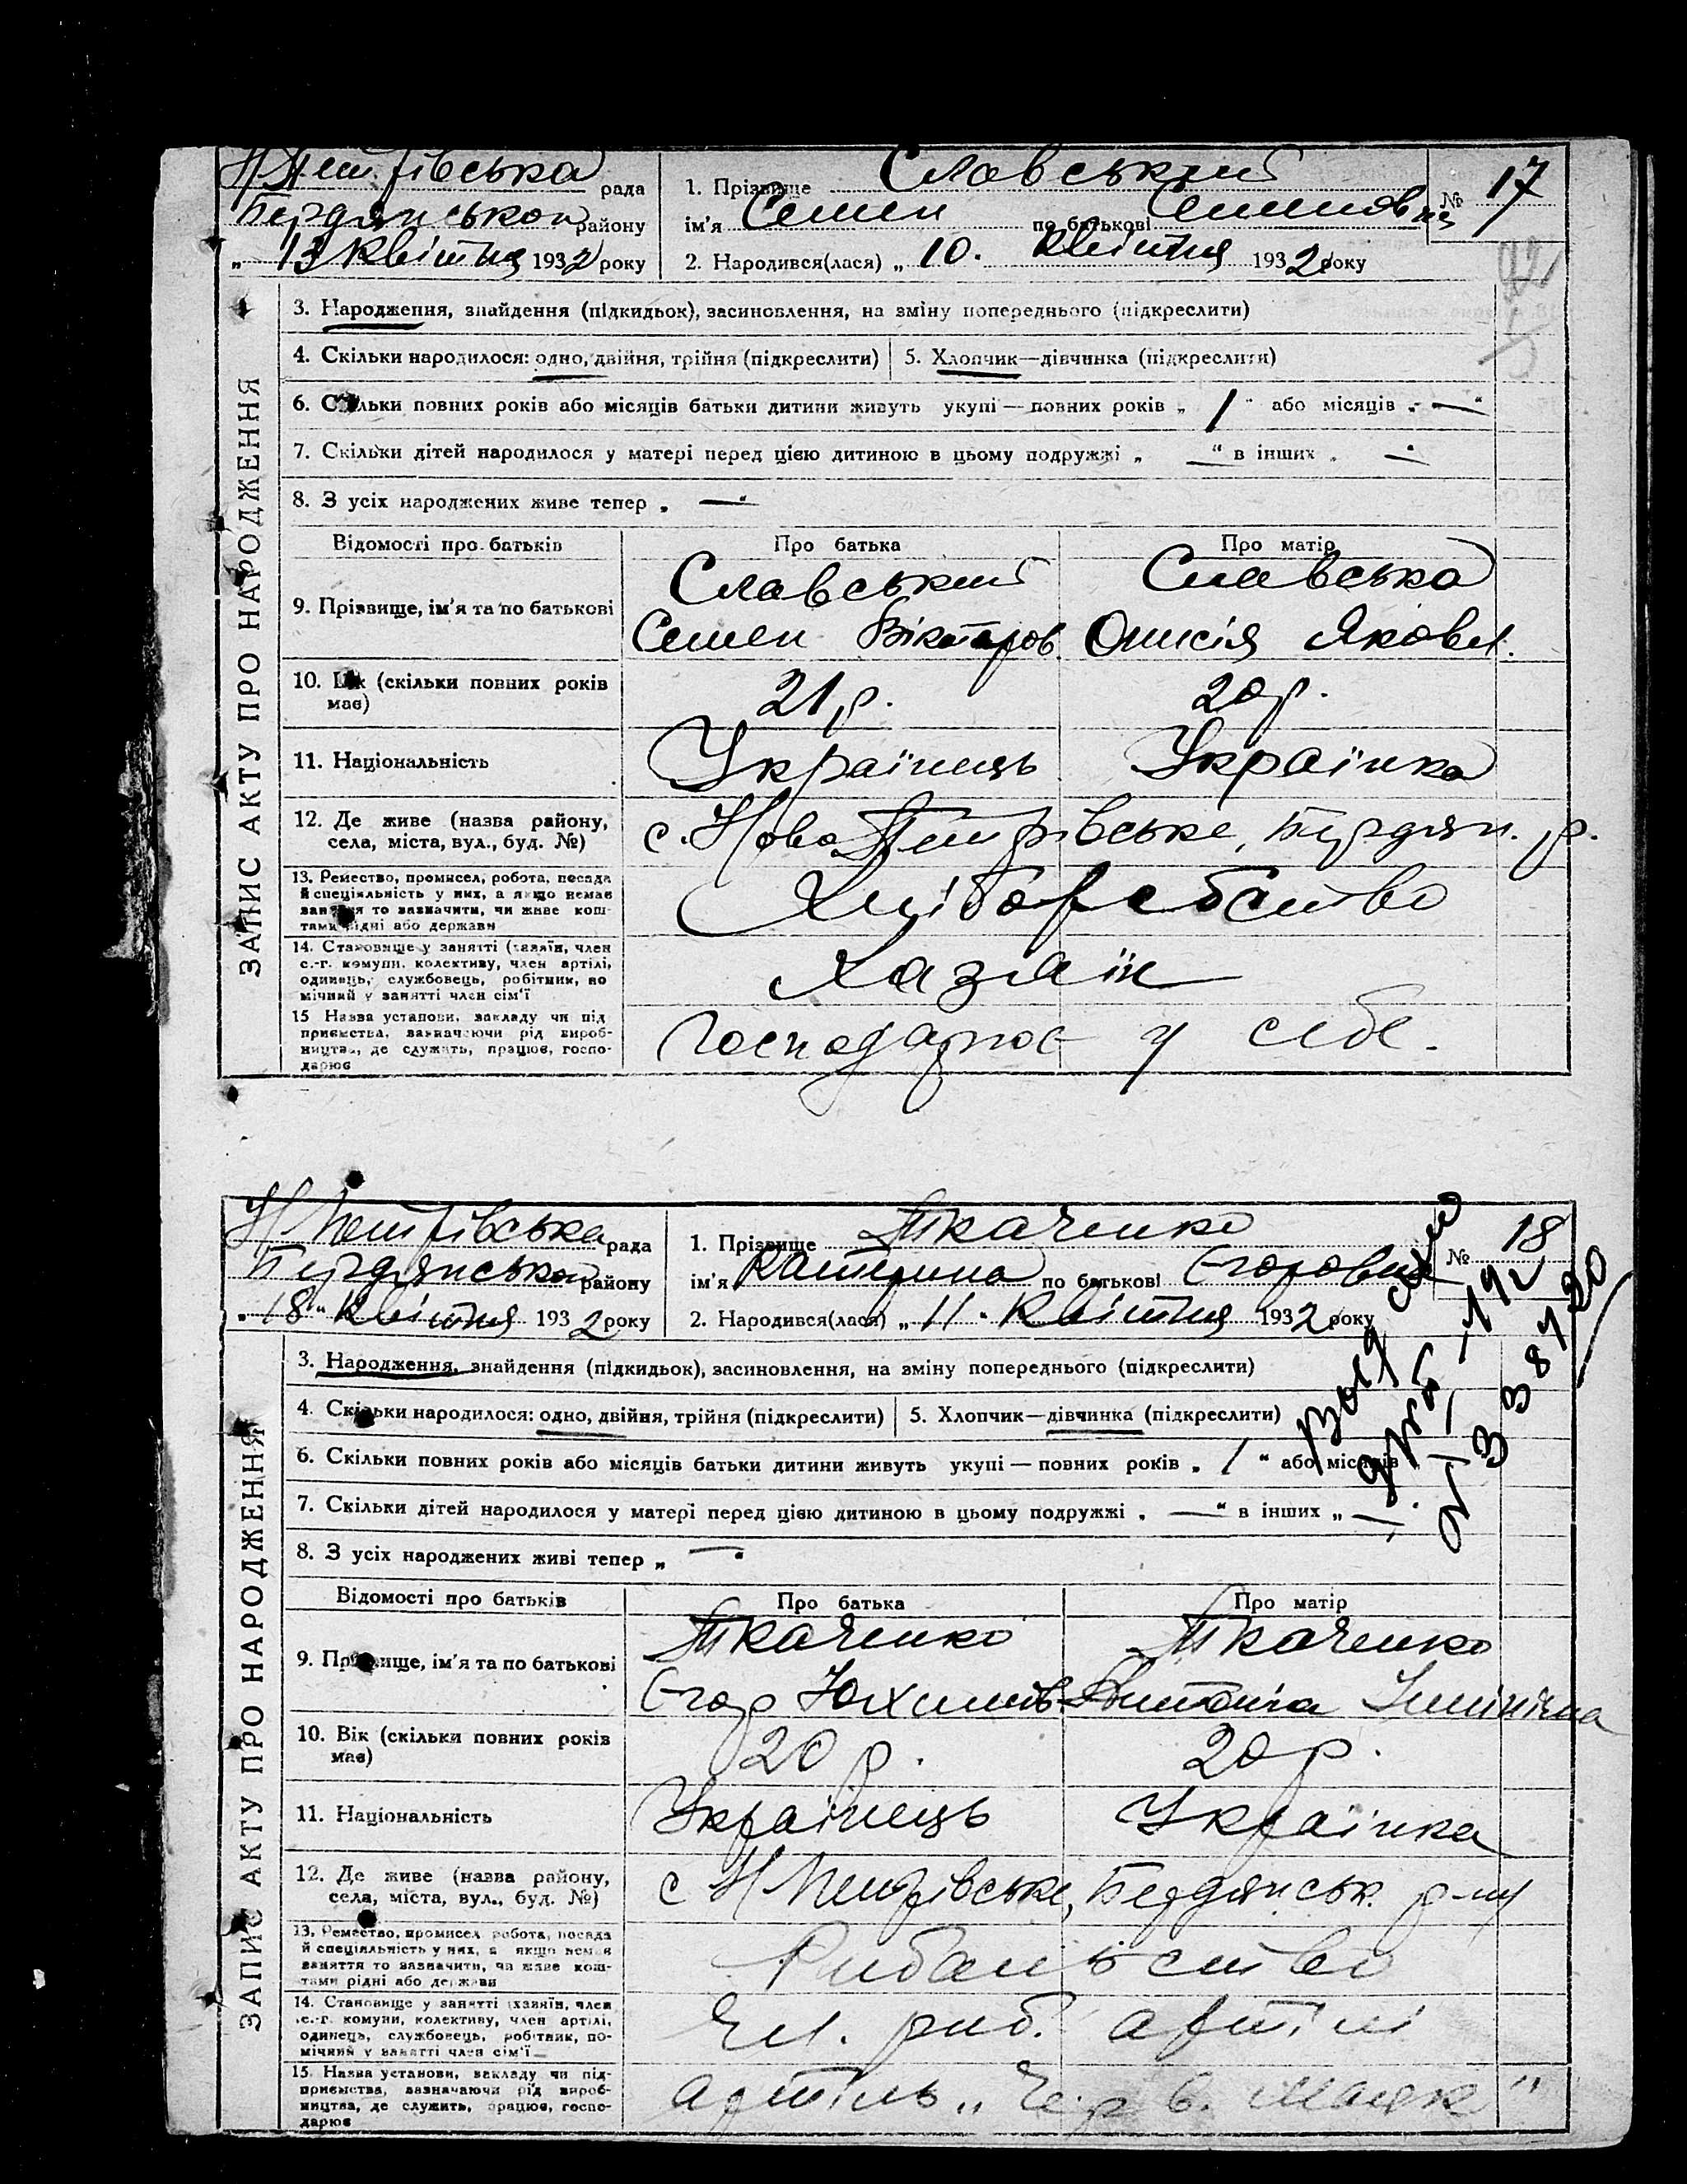 Н Петрівська рада
Бердянського району
„ 13 квітня 1932 року
1. Прізвище Славський
ім'я Семен по батькові Семенович
№ 17
2. Народився(лася) „ 10. квітня 1932 року
ЗАПИС АКТУ ПРО НАРОДЖЕННЯ
3. Народження, знайдення (підкидьок), засиновлення, на зміну попереднього (підкреслити)
4. Скільки народилося: одно, двійня, трійня (підкреслити) 5. Хлопчик—дівчинка (підкреслити)
6. Скільки повних років або місяців батьки дитини живуть укупі — повних років „ 1 “ або місяців „ — “
7. Скільки дітей народилося у матері перед цією дитиною в цьому подружжі „ — “ в інших „ — “
8. З усіх народжених живе тепер „ — “
Відомості про батьків Про батька Про матір
9. Прізвище, ім'я та по батькові
Славський Славська
Семен Вікторов. Онисія Яковл.
10. Вік (скільки повних років має) 21 р. 20 р.
11. Національність Українець Українка
12. Де живе (назва району, села, міста, вул., буд. №)
с. Ново Петрівське, Бердян. р.
13. Ремество, промисел, робота, посада
й спеціяльність у них, а якщо немає
заняття то зазначити, чи живе кош-
тами рідні або держави
Хліборобство
14. Становище у занятті (хазяїн, член
с.-г. комуни, колективу, член артілі,
одинець, службовець, робітник, по
мічний у занятті член сім'ї
Хазяїн
15 Назва установи, закладу чи під
приємства, зазначаючи рід вироб-
ництва, де служить, працює, госпо-
дарює
Господарює у себе.
Н Петрівська рада
Бердянського району
„ 18 “ квітня 1932 року
1. Прізвище Ткаченко
ім'я Катерина по батькові Егоровна
№ 18
2. Народився(лася) „ 11 “ квітня 1932 року
ЗАПИС АКТУ ПРО НАРОДЖЕННЯ
3. Народження, знайдення (підкидьок), засиновлення, на зміну попереднього (підкреслити)
4. Скільки народилося: одно, двійня, трійня (підкреслити) 5. Хлопчик—дівчинка (підкреслити)
6. Скільки повних років або місяців батьки дитини живуть укупі — повних років „ 1 “ або місяців
7. Скільки дітей народилося у матері перед цією дитиною в цьому подружжі „ — “ в інших „ —
8. З усіх народжених живі тепер „ — “
Відомості про батьків Про батька Про матір
9. Прізвище, ім'я та по батькові
Ткаченко Ткаченко
Егор Юхимів.
10. Вік (скільки повних років має) 20 р. 20 р.
11. Національність Українець Українка
12. Де живе (назва району, села, міста, вул., буд. №)
с Н Петрівське, Бердянськ. р-ну
13. Ремество, промисел робота, посада
й спеціяльність у них, а якщо немає
заняття то зазначити, чи живе кош-
тами рідні або держави
Рибальство
14. Становище у занятті (хазяїн, член
с.-г. комуни, колективу, член артілі,
одинець, службовець, робітник, по-
мічний у занятті член сім'ї
Чл. риб. артілі
15. Назва установи, закладу чи під-
приємства, зазначаючи рід вироб-
ництва, де служить, працює, госпо-
дарює
артіль „Черв. Маяк"